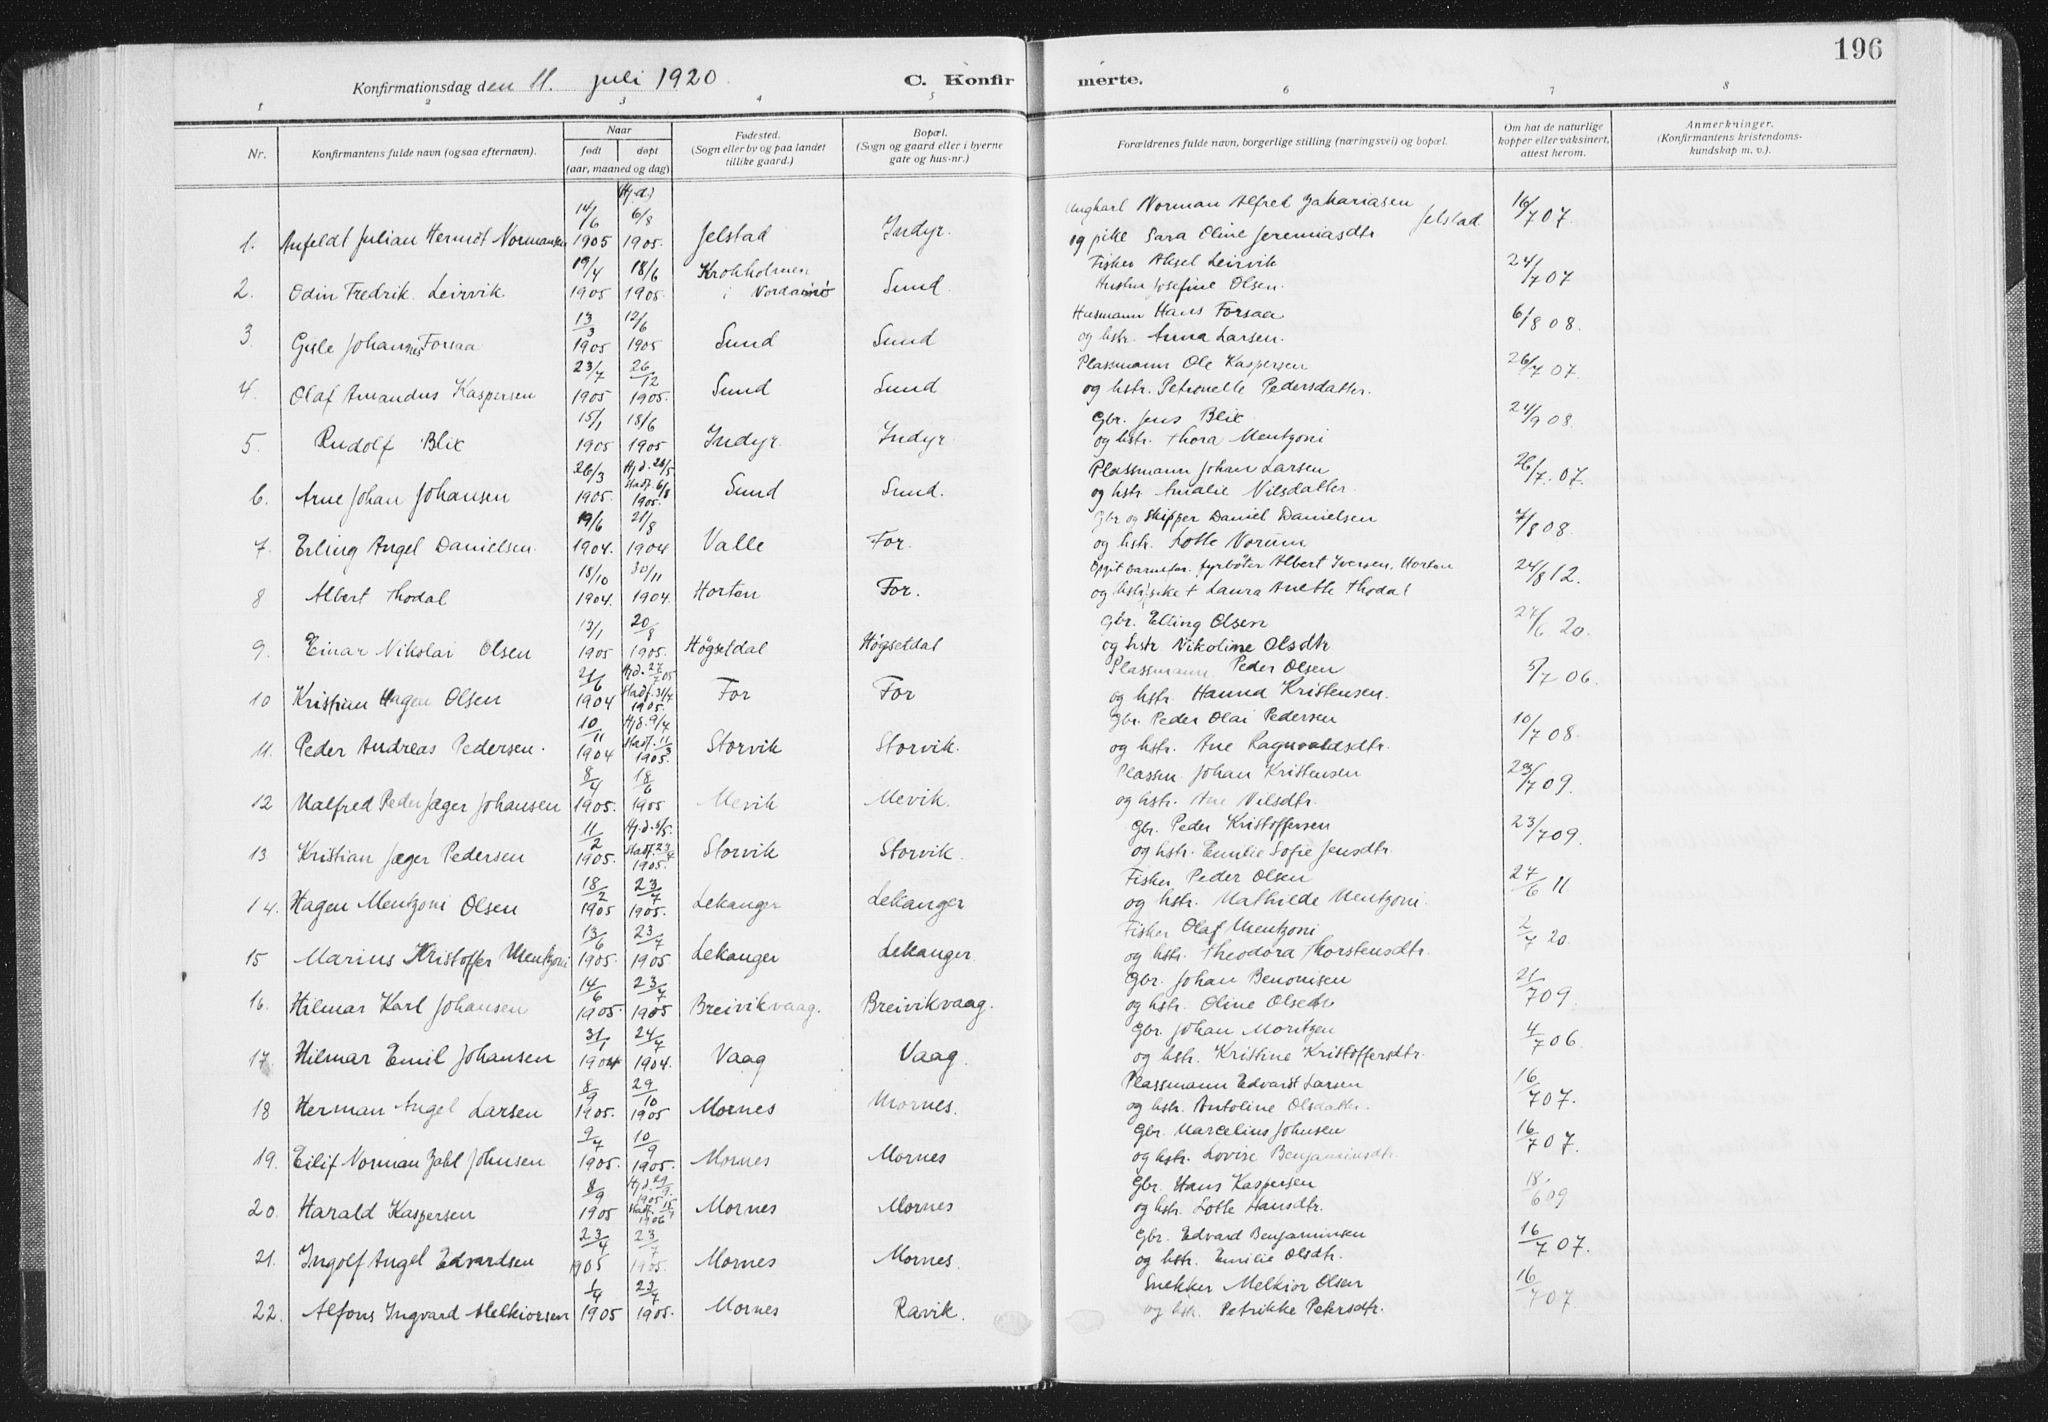 196
Konfirmationsdag den 11. juli 1920. C. Konfir merte.
1 2 3 4 5 6 7 8
Nr. Konfirmantens fulde navn (ogsaa efternavn). Naar født døpt (aar, maaned og dag) Fødested. (Sogn eller by og paa landet tillike gaard.) Bopæl. (Sogn og gaard eller i byerne gate og hus-nr.) Forældrenes fulde navn, borgerlige stilling (næringsvei) og bopæl. Om hat de naturlige kopper eller vaksinert, attest herom. Anmerkninger. (Konfirmantens kristendoms-kundskap m. v.).
14/6 (Hj.d.) 6/8 Ungkarl Norman Alfred Zakariasen 16/7 07.
1. Anfeldt Julian Hermot Normansen 1905 1905. Jelstad Indyr. og pike Sara Oline Jeremiasdtr Jelstad
19/4 18/6 Krokholmen Fisker Aksel Leirvik 24/7 07
2. Odin Fredrik Leirvik 1905 1905. i Nordarnø Sund. Hustru Josefine Olsen.
13/3 12/6 Husmann Hans Forsaa 6/8 08.
3. Gisle Johannes Forsaa 1905 1905 Sund Sund og hstr. Anna Larsen.
23/7 26/12 Plassmann Ole Kaspersen 26/7 07.
4. Olaf Amandus Kaspersen 1905 1905. Sund Sund og hstr. Petronelle Pedersdatter.
15/1 18/6 Gbr. Jens Blix 24/9 08.
5. Rudolf Blix 1905 1905. Indyr. Indyr. og hstr. Thora Mentzoni
26/3 Hj.d. 26/5 Stadf. 6/8 Plassmann Johan Larsen 26/7. 07.
6. Arne Johan Johansen 1905. 1905. Sund Sund. og hstr Amalie Nilsdatter.
19/6 21/8 Gbr og skipper Daniel Danielsen 7/8 08.
7. Erling Angel Danielsen. 1904. 1904 Valle For. og hstr. Lotte Norum
18/10 30/11 Opgit barnefar. fyrbøter Albert Iversen, Horten 24/8 12.
8 Albert Thodal 1904. 1904. Horten For. og pike + Laura Anette Thodal
13/1 20/8 Gbr. Elling Olsen 27/6 20.
9. Einar Nikolai Olsen 1905 1905. Högsetdal Högsetdal og hstr Nikoline Olsdtr
21/6 Hj.d. 27/7 05 Stadf. 31/7 Plassmann Peder Olsen 5/7 06.
10 Kristian Hagen Olsen 1904 1905. For For og hstr. Hanna Kristensen.
10/11 Hj.d. 9/4 Stadf. 11/3 Gbr. Peder Olai Pedersen 10/7 08.
11. Peder Andreas Pedersen. 1904 1905. Storvik Storvik. og hstr. Ane Ragnvaldsdtr.
8/4 18/6 Plassm. Johan Kristensen 23/7 09.
12 Malfred Peder Jæger Johansen 1905. 1905 Mevik Mevik. og hstr. Ane Nilsdtr.
11/2 Hj.d. 5/5. Stadf. 23/4 Gbr. Peder Kristoffersen 23/7 09.
13. Kristian Jæger Pedersen 1905. 1905. Storvik Storvik. og hstr. Emilie Sofie Jensdtr.
18/2 23/7 Fisker Peder Olsen 27/6 11
14. Hagen Mentzoni Olsen 1905 1905. Lekanger Lekanger og hstr. Mathilde Mentzoni.
13/6 23/7 Fisker Olaf Mentzoni 2/7 20.
15 Marius Kristoffer Mentzoni 1905. 1905. Lekanger Lekanger og hstr. Theodora Thorstensdtr.
14/6 23/7 Gbr. Johan Benonisen 21/7 09.
16. Hilmar Karl Johansen 1905. 1905 Breivikvaag. Breivikvaag. og hstr. Oline Olsdtr
31/1 24/7 Gbr. Johan Moritzen 4/7 06.
17. Hilmar Emil Johansen 1904 1904. Vaag Vaag. og hstr. Kristine Kristoffersdtr.
8/9 29/10 Plassmann Edvardt Larsen 16/7 07.
18 Herman Angel Larsen 1905. 1905 Mornes Mornes. og hstr. Antoline Olsdatter.
9/7 10/9 Gbr. Marcelius Johnsen 16/7 07.
19. Eilif Norman Zahl Johnsen 1905. 1905. Mornes Mornes og hstr. Lovise Benjaminsdtr.
8/9 Hj.d. 29/9. 1905 Stadf. Gbr. Hans Kaspersen 18/6 09
20. Harald Kaspersen 1905 1906 Mornes Mornes og hstr. Lotte Hansdtr.
23/4 23/7 Gbr. Edvard Benjaminsen 16/7 07.
21. Ingolf Angel Edvardsen 1905 1905. Mornes Mornes. og hstr. Emilie Olsdtr.
1/4 23/7 Snekker Melkior Olsen 16/7 07
22. Alfons Ingvard Melkiorsen 1905 1905. Mornes Ravik. og hstr. Petrikke Petersdtr.